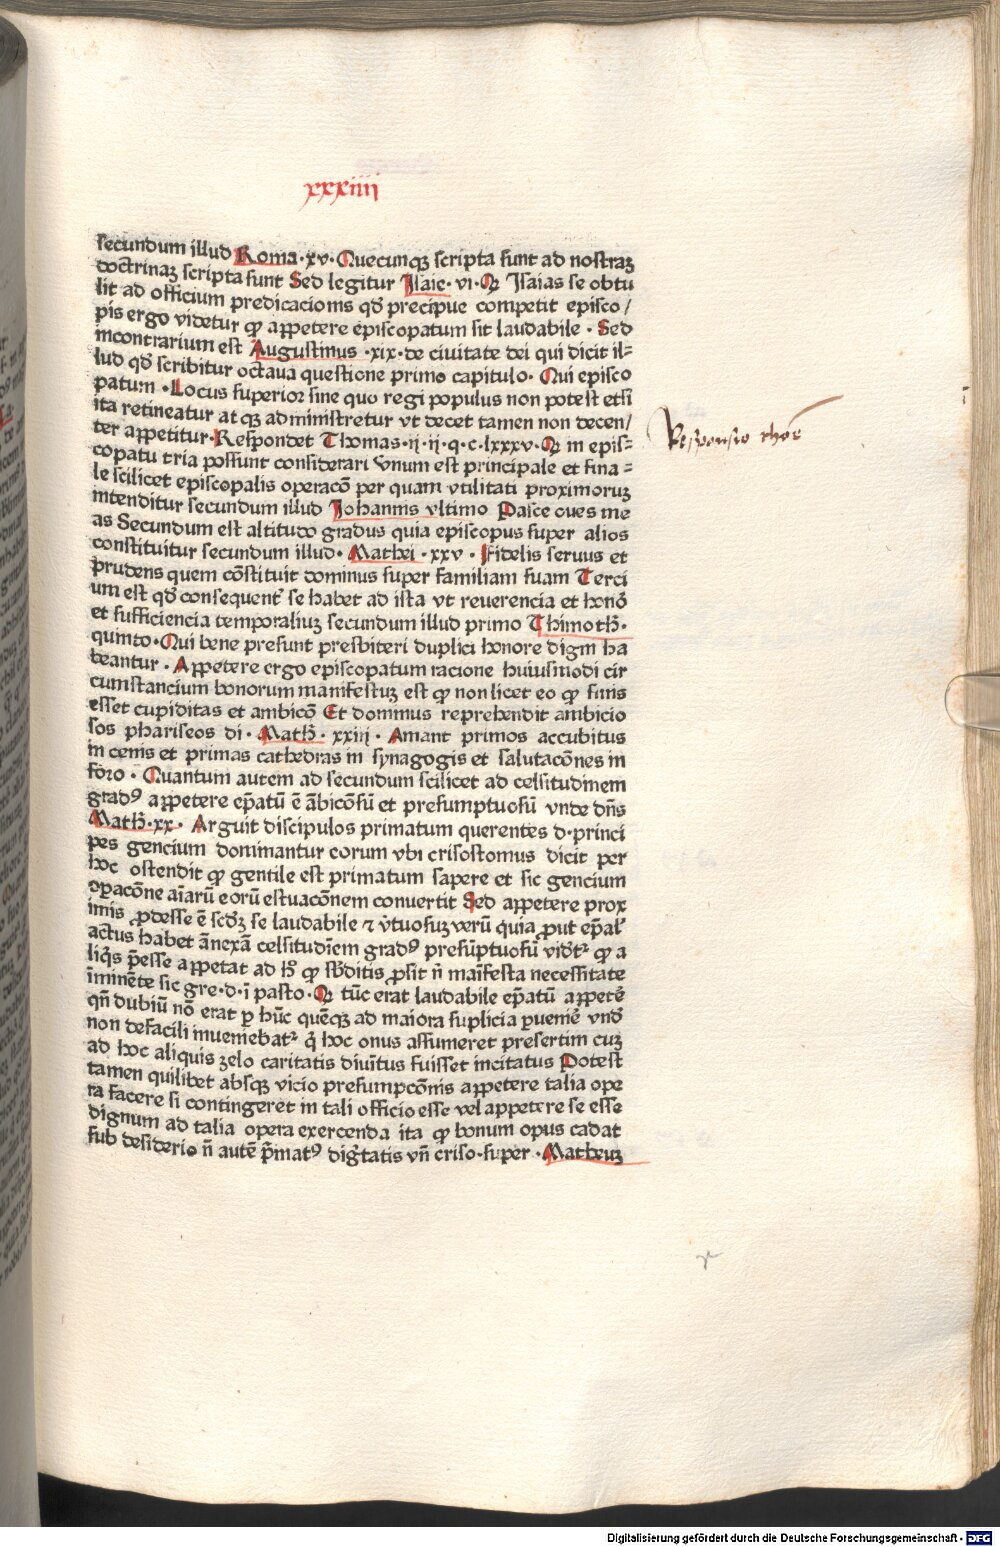 xxxiiii
secundum illud Roma·xv· Quecunqꝫ scripta sunt ad nostraꝫ
doctrinaꝫ scripta sunt Sed legitur Jsaie· vi· Qꝛ Jsaias se obtu
lit ad officium predicacionis qd̄ precipue competit episco/
pis ergo videtur ꝙ appetere episcopatum sit laudabile · Sed
incontrarium est Augustinus ·xix· de ciuitate dei qui dicit il⸗
lud qd̄ scribitur octaua questione primo capitulo· Qui episco
patum · Locus superior sine quo regi populus non potest etsi
ita retineatur at qꝫ administretur vt decet tamen non decen/
ter appetitur· Respondet Thomas·ij·ij·q·c·lxxxv· Qꝛ in epis⸗
copatu tria possunt considerari Vnum est principale et fina⸗
le scilicet episcopalis operacō per quam vtilitati proximoruꝫ
intenditur secundum illud Johannis vltimo Pasce oues me
as Secundum est altitudo gradus quia episcopus super alios
constituitur secundum illud· Mathei ·xxv · Fidelis seruus et
prudens quem cōstituit dominus super familiam suam Terci
um est qd̄ consequent᷑ se habet ad ista vt reuerencia et honō
et sufficiencia temporaliuꝫ secundum illud primo Thimoth̄·
quinto· Qui bene presunt presbiteri duplici honore digni ha
beantur · Appetere ergo episcopatum racione huiusmodi cir
cumstancium bonorum manifestuꝫ est ꝙ non licet eo ꝙ finis
esset cupiditas et ambicō Et dominus reprehendit ambicio
sos phariseos di· Math̄· xxiij · Amant primos accubitus
in cenis et primas cathedras in synagogis et salutacōnes in
foro · Quantum autem ad secundum scilicet ad celsitudinem
gradꝰ appetere ep̄atū ē ābicōsū et presumptuosū vnde dn̄s
Math̄·xx· Arguit discipulos primatum querentes d·princi
pes gencium dominantur eorum vbi crisostomus dicit per
hoc ostendit ꝙ gentile est primatum sapere et sic gencium
opacōne aīarū eorū estuacōnem conuertit Sed appetere prox
imis ꝓdesse ē scd̄ꝫ se laudabile ⁊ v̓tuosuꝫ verū quia ꝓut ep̄al᷑
actus habet ānexā celsitudīem gradꝰ presūptuosū vid̄t᷑ ꝙ a
liq̄s p̄esse appetat ad h̄ ꝙ sb̄ditis ꝓsit n̄ maīfesta necessitate
īminēte sic gre·d·ī pasto· Qꝛ tūc erat laudabile ep̄atū appete᷑
qn̄ dubiū nō erat ꝑ hūc quēqꝫ ad maiora suplicia ꝑuenie᷑ vnd̄
non defacili inueniebat᷑ q̇ hoc onus assumeret presertim cuꝫ
ad hoc aliquis zelo caritatis diuīitus fuisset incitatus Potest
tamen quilibet absqꝫ vicio presumpcōnis appetere talia ope
ra facere si contingeret in tali officio esse vel appetere se esse
dignum ad talia opera exercenda ita ꝙ bonum opus cadat
sub desiderio n̄ autē p̄matꝰ dig̓tatis vn̄ criso·super · Matheuꝫ
Responsio thōe
Digitalisierung gefördert durch die Deutsche Forschungsgemeinschaft - DFG